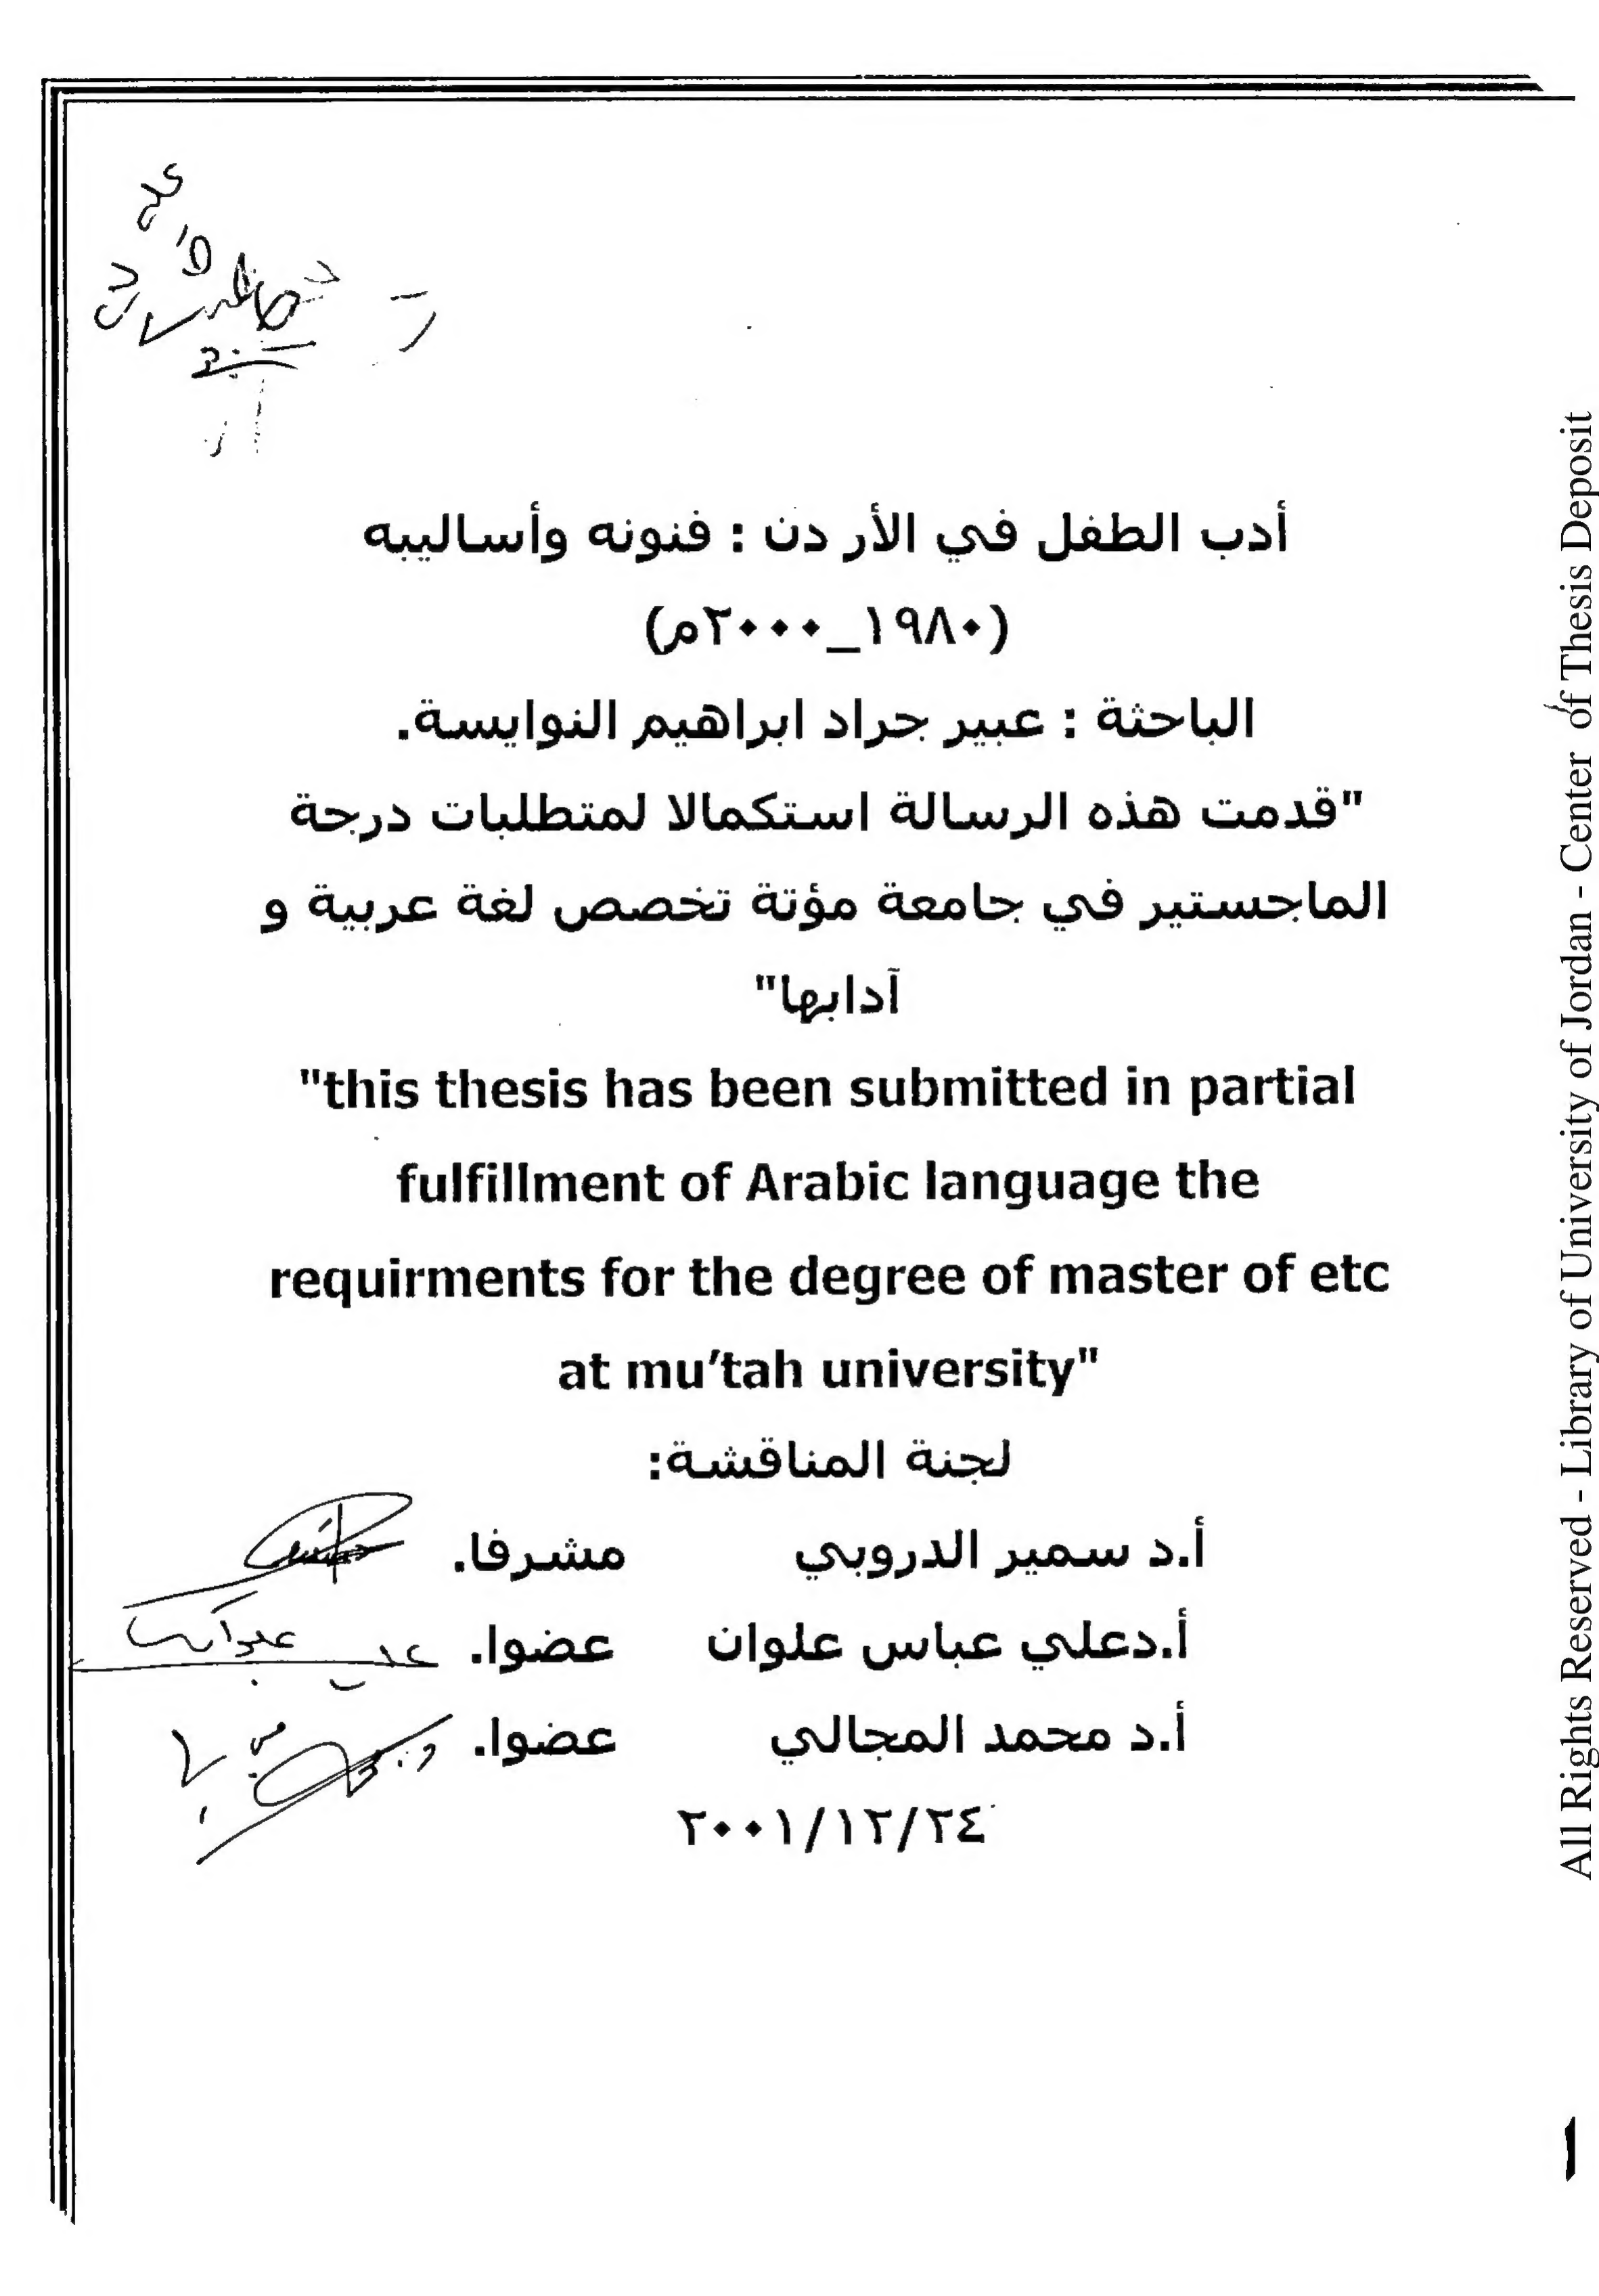 أدب الطفل في الأردن : فنونه وأساليبه
(١٩٨٠_٢٠٠٠م)
الباحثة : عبير جراد ابراهيم النوايسة.
"قدمت هذه الرسالة استكمالا لمتطلبات درجة
الماجستير في جامعة مؤتة تخصص لغة عربية و
آدابها"
"this thesis has been submitted in partial
fulfillment of Arabic language the
requirments for the degree of master of etc
at mu'tah university"
لجنة المناقشة:
أ.د سمير الدروبي مشرفا.
أ.دعلي عباس علوان عضوا.
أ.د محمد المجالي عضوا.
٢٠٠١/١٢/٢٤
All Rights Reserved - Library of University of Jordan - Center of Thesis Deposit